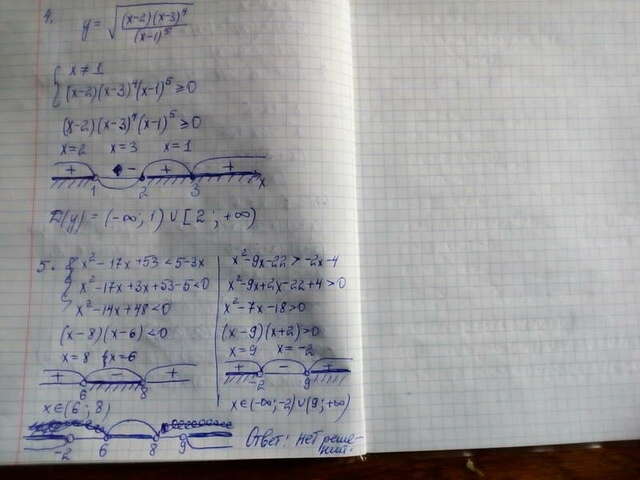 4. y = √((x-2)(x-3)⁴/(x-1)⁵)
{ x ≠ 1
(x-2)(x-3)⁴(x-1)⁵ ≥ 0
(x-2)(x-3)⁴(x-1)⁵ ≥ 0
x=2 x=3 x=1
+ - + +
1 2 3 x
D(y) = (-∞; 1) ∪ [2; +∞)
5. { x² - 17x + 53 < 5 - 3x
x² - 17x + 3x + 53 - 5 < 0
x² - 14x + 48 < 0
(x-8)(x-6) < 0
x=8 x=6
+ - +
6 8
x ∈ (6; 8)
x² - 9x - 22 > -2x - 4
x² - 9x + 2x - 22 + 4 > 0
x² - 7x - 18 > 0
(x-9)(x+2) > 0
x=9 x=-2
+ - +
-2 9
x ∈ (-∞; -2) ∪ (9; +∞)
-2 6 8 9
Ответ: нет реше-
ний.